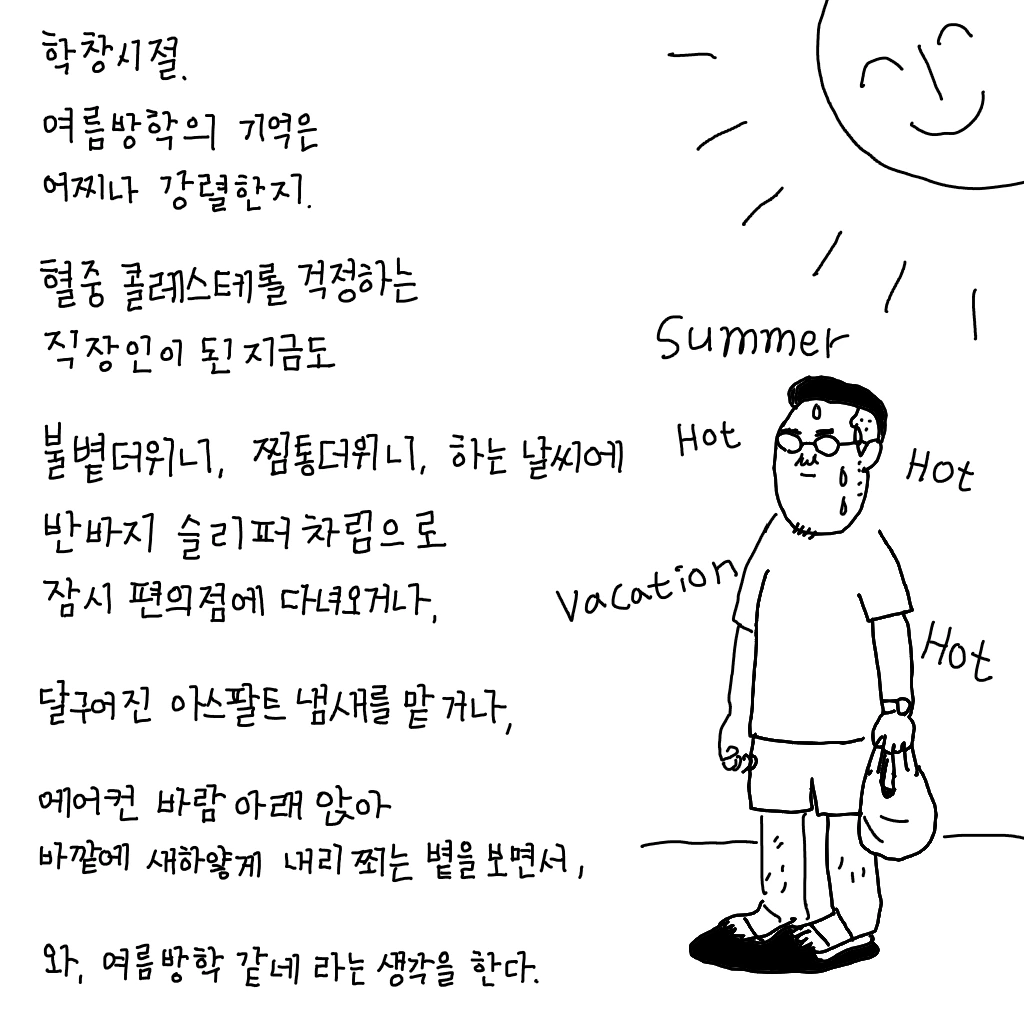 학창시절.
여름방학의 기억은
어찌나 강렬한지.
혈중 콜레스테롤 걱정하는
직장인이 된 지금도
불볕더위니, 찜통더위니, 하는 날씨에
반바지 슬리퍼 차림으로
잠시 편의점에 다녀오거나,
달구어진 아스팔트 냄새를 맡거나,
에어컨 바람 아래 앉아
바깥에 새하얗게 내리쬐는 볕을 보면서,
와, 여름방학 같네 라는 생각을 한다.
Summer
Hot
Hot
Vacation
Hot